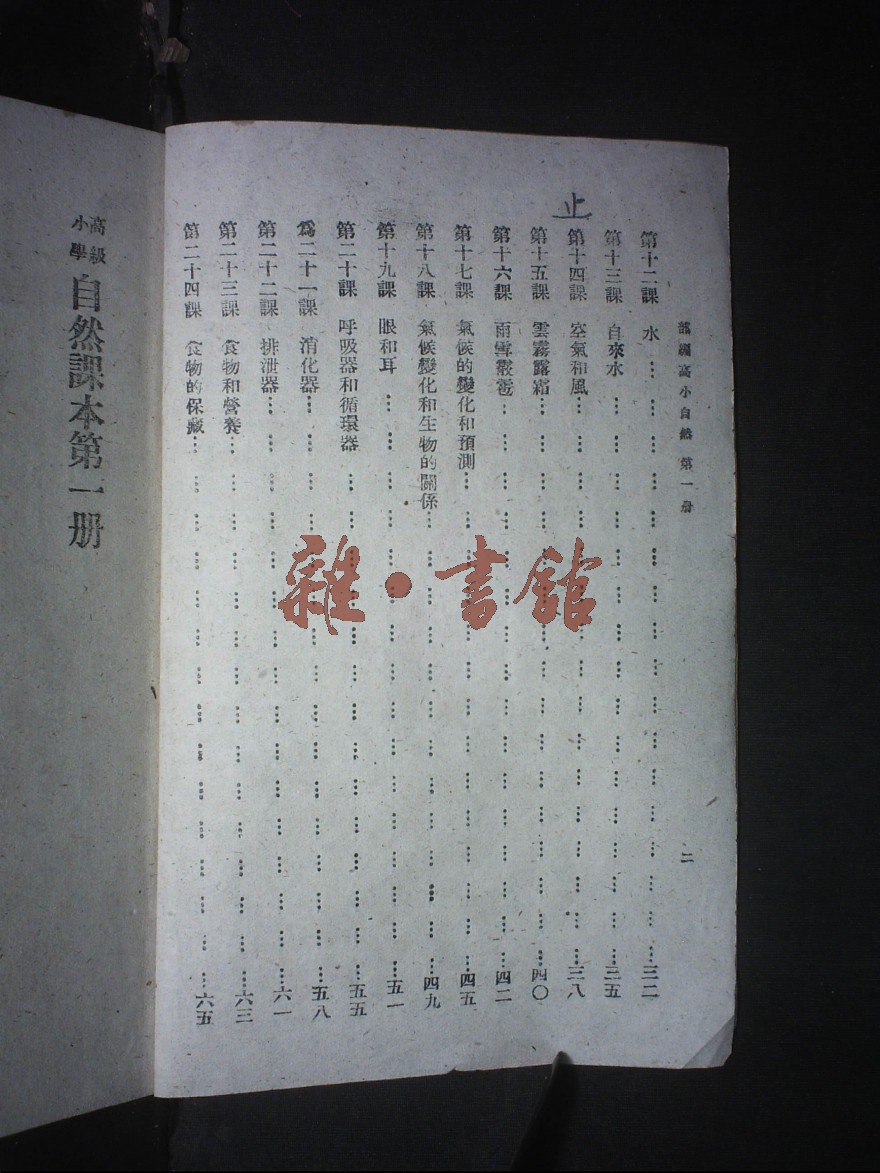 編高小自然 第一册
二
止
第十二課 水………三二
第十三課 自來水………三五
第十四課 空氣和風………三八
第十五課 雲霧露霜………四〇
第十六課 雨雪霰雹………四二
第十七課 氣候的變化和預測………四五
第十八課 氣候變化和生物的關係………四九
第十九課 眼和耳………五一
第二十課 呼吸器和循環器………五五
爲二十一課 消化器………五八
第二十二課 排泄器………六一
第二十三課 食物和營養………六三
第二十四課 食物的保藏………六五
高級小學 自然課本第一册
雜·書館